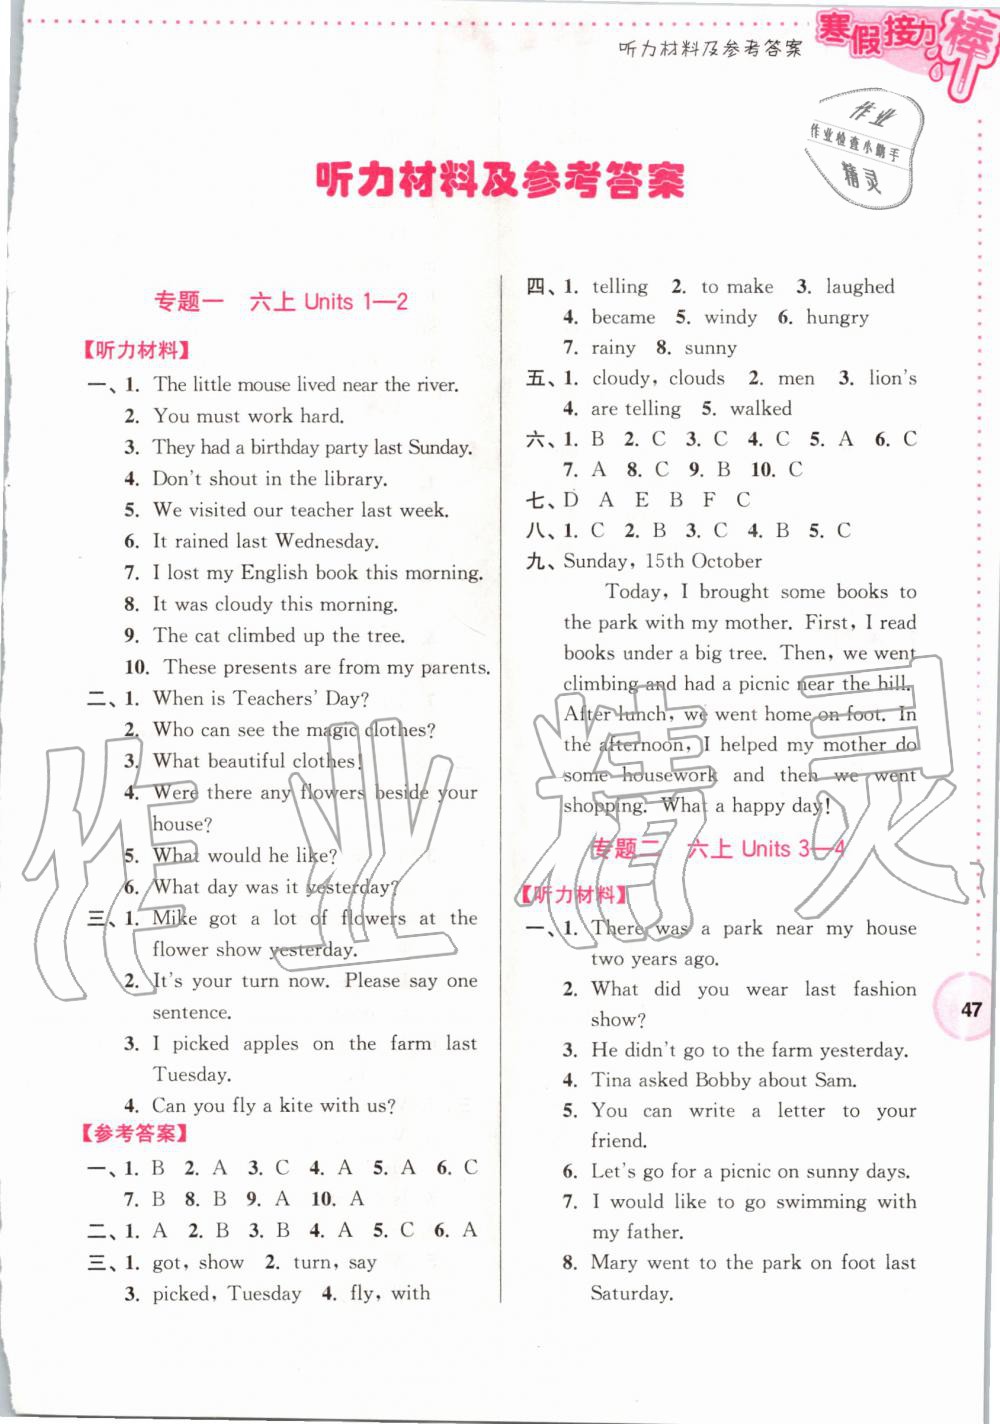 听力材料及参考答案
寒假接力棒
作业
作业检查小帮手
精灵
听力材料及参考答案
专题一 六上 Units 1—2
【听力材料】
一、1. The little mouse lived near the river.
2. You must work hard.
3. They had a birthday party last Sunday.
4. Don't shout in the library.
5. We visited our teacher last week.
6. It rained last Wednesday.
7. I lost my English book this morning.
8. It was cloudy this morning.
9. The cat climbed up the tree.
10. These presents are from my parents.
二、1. When is Teachers' Day?
2. Who can see the magic clothes?
3. What beautiful clothes!
4. Were there any flowers beside your
house?
5. What would he like?
6. What day was it yesterday?
三、1. Mike got a lot of flowers at the
flower show yesterday.
2. It's your turn now. Please say one
sentence.
3. I picked apples on the farm last
Tuesday.
4. Can you fly a kite with us?
【参考答案】
一、1. B 2. A 3. C 4. A 5. A 6. C
7. B 8. B 9. A 10. A
二、1. A 2. B 3. B 4. A 5. C 6. A
三、1. got, show 2. turn, say
3. picked, Tuesday 4. fly, with
四、1. telling 2. to make 3. laughed
4. became 5. windy 6. hungry
7. rainy 8. sunny
五、1. cloudy, clouds 2. men 3. lion's
4. are telling 5. walked
六、1. B 2. C 3. C 4. C 5. A 6. C
7. A 8. C 9. B 10. C
七、D A E B F C
八、1. C 2. B 3. C 4. B 5. C
九、Sunday, 15th October
Today, I brought some books to
the park with my mother. First, I read
books under a big tree. Then, we went
climbing and had a picnic near the hill.
After lunch, we went home on foot. In
the afternoon, I helped my mother do
some housework and then we went
shopping. What a happy day!
专题二 六上 Units 3—4
【听力材料】
一、1. There was a park near my house
two years ago.
2. What did you wear last fashion
show?
3. He didn't go to the farm yesterday.
4. Tina asked Bobby about Sam.
5. You can write a letter to your
friend.
6. Let's go for a picnic on sunny days.
7. I would like to go swimming with
my father.
8. Mary went to the park on foot last
Saturday.
47
作业精灵